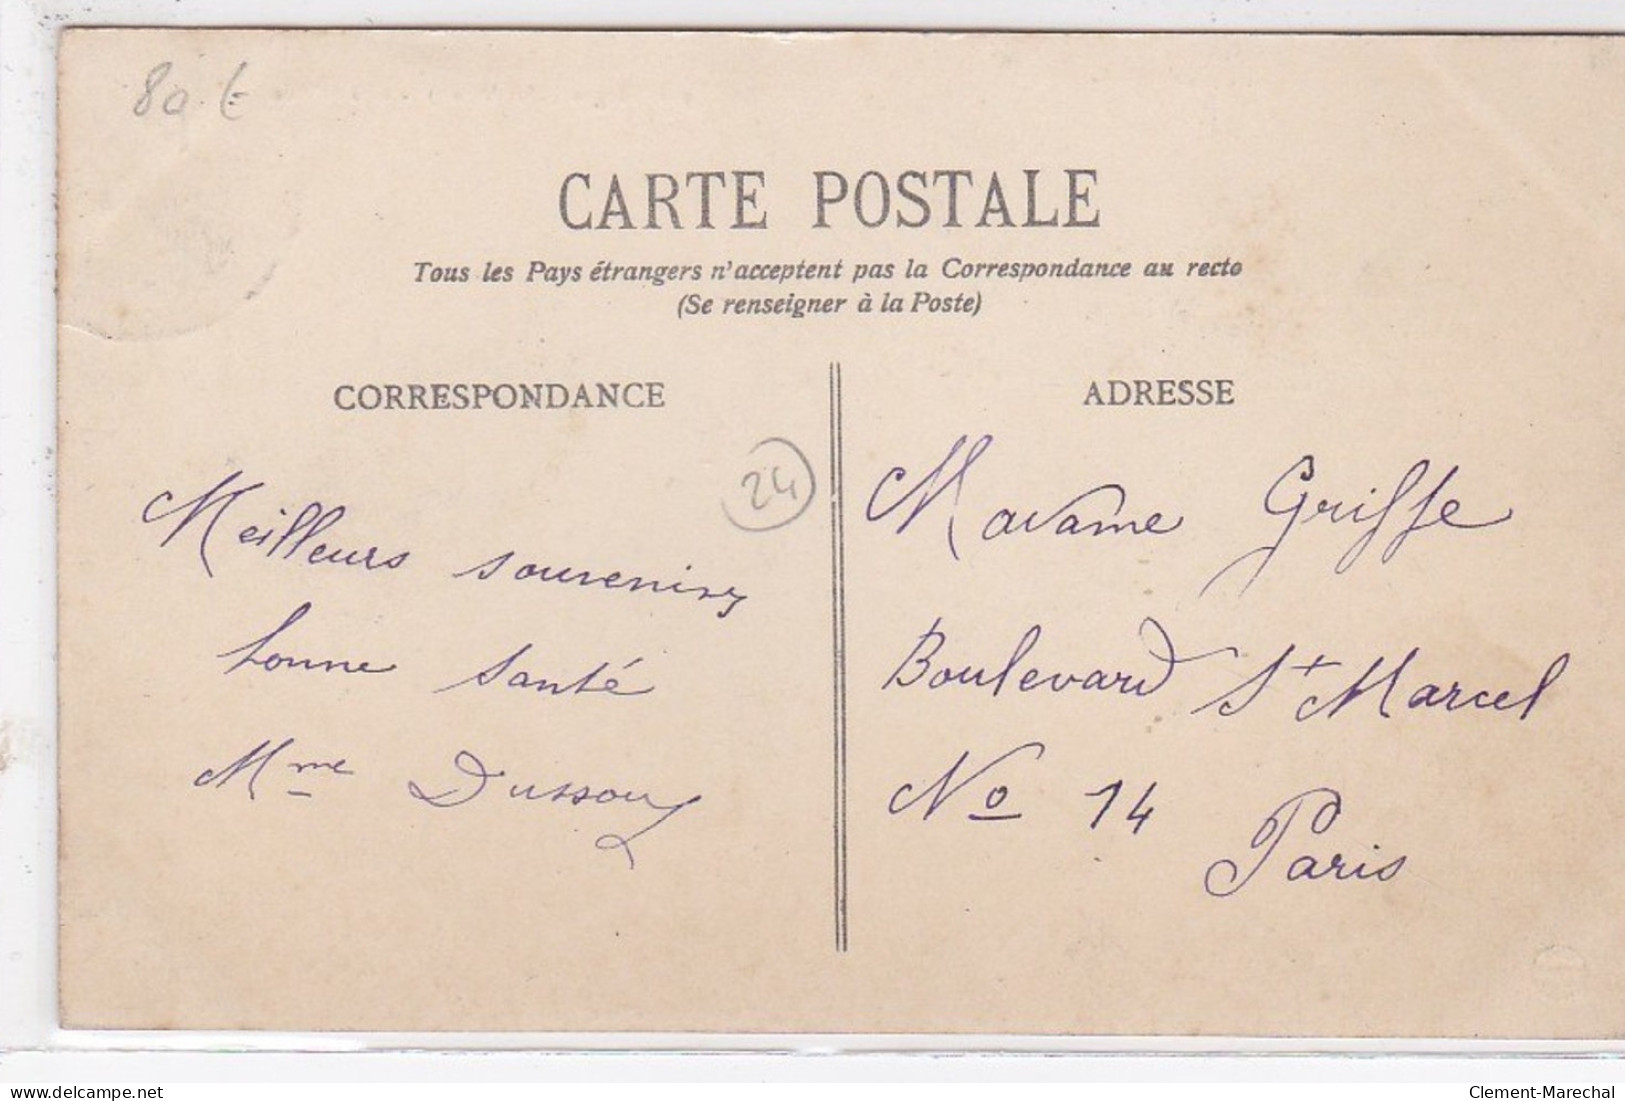 80 €
CARTE POSTALE
Tous les Pays étrangers n'acceptent pas la Correspondance au recto
(Se renseigner à la Poste)
CORRESPONDANCE
24
Meilleurs souvenirs
bonne santé
Mme
ADRESSE
Madame Griffe
Boulevard St Marcel
No 14
Paris
delcampe.net
Clement-Marechal